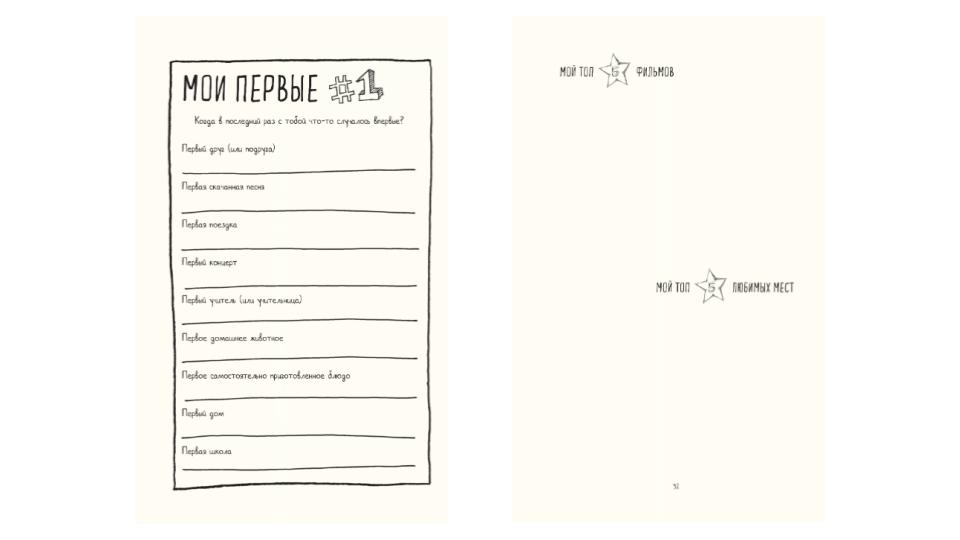 МОИ ПЕРВЫЕ #1
Когда в последний раз с тобой что-то случалось впервые?
Первый друг (или подруга)
Первая скачанная песня
Первая поездка
Первый концерт
Первый учитель (или учительница)
Первое домашнее животное
Первое самостоятельно приготовленное блюдо
Первый дом
Первая школа
МОЙ ТОП 5 ФИЛЬМОВ
МОЙ ТОП 5 ЛЮБИМЫХ МЕСТ